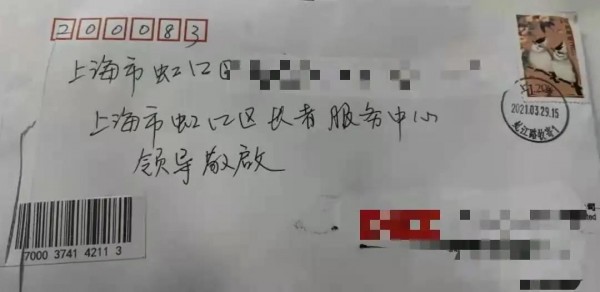 200083
上海市虹口
上海市虹口区长者服务中心
领导敬启
2021.03.29.15
7000 3741 4211 3